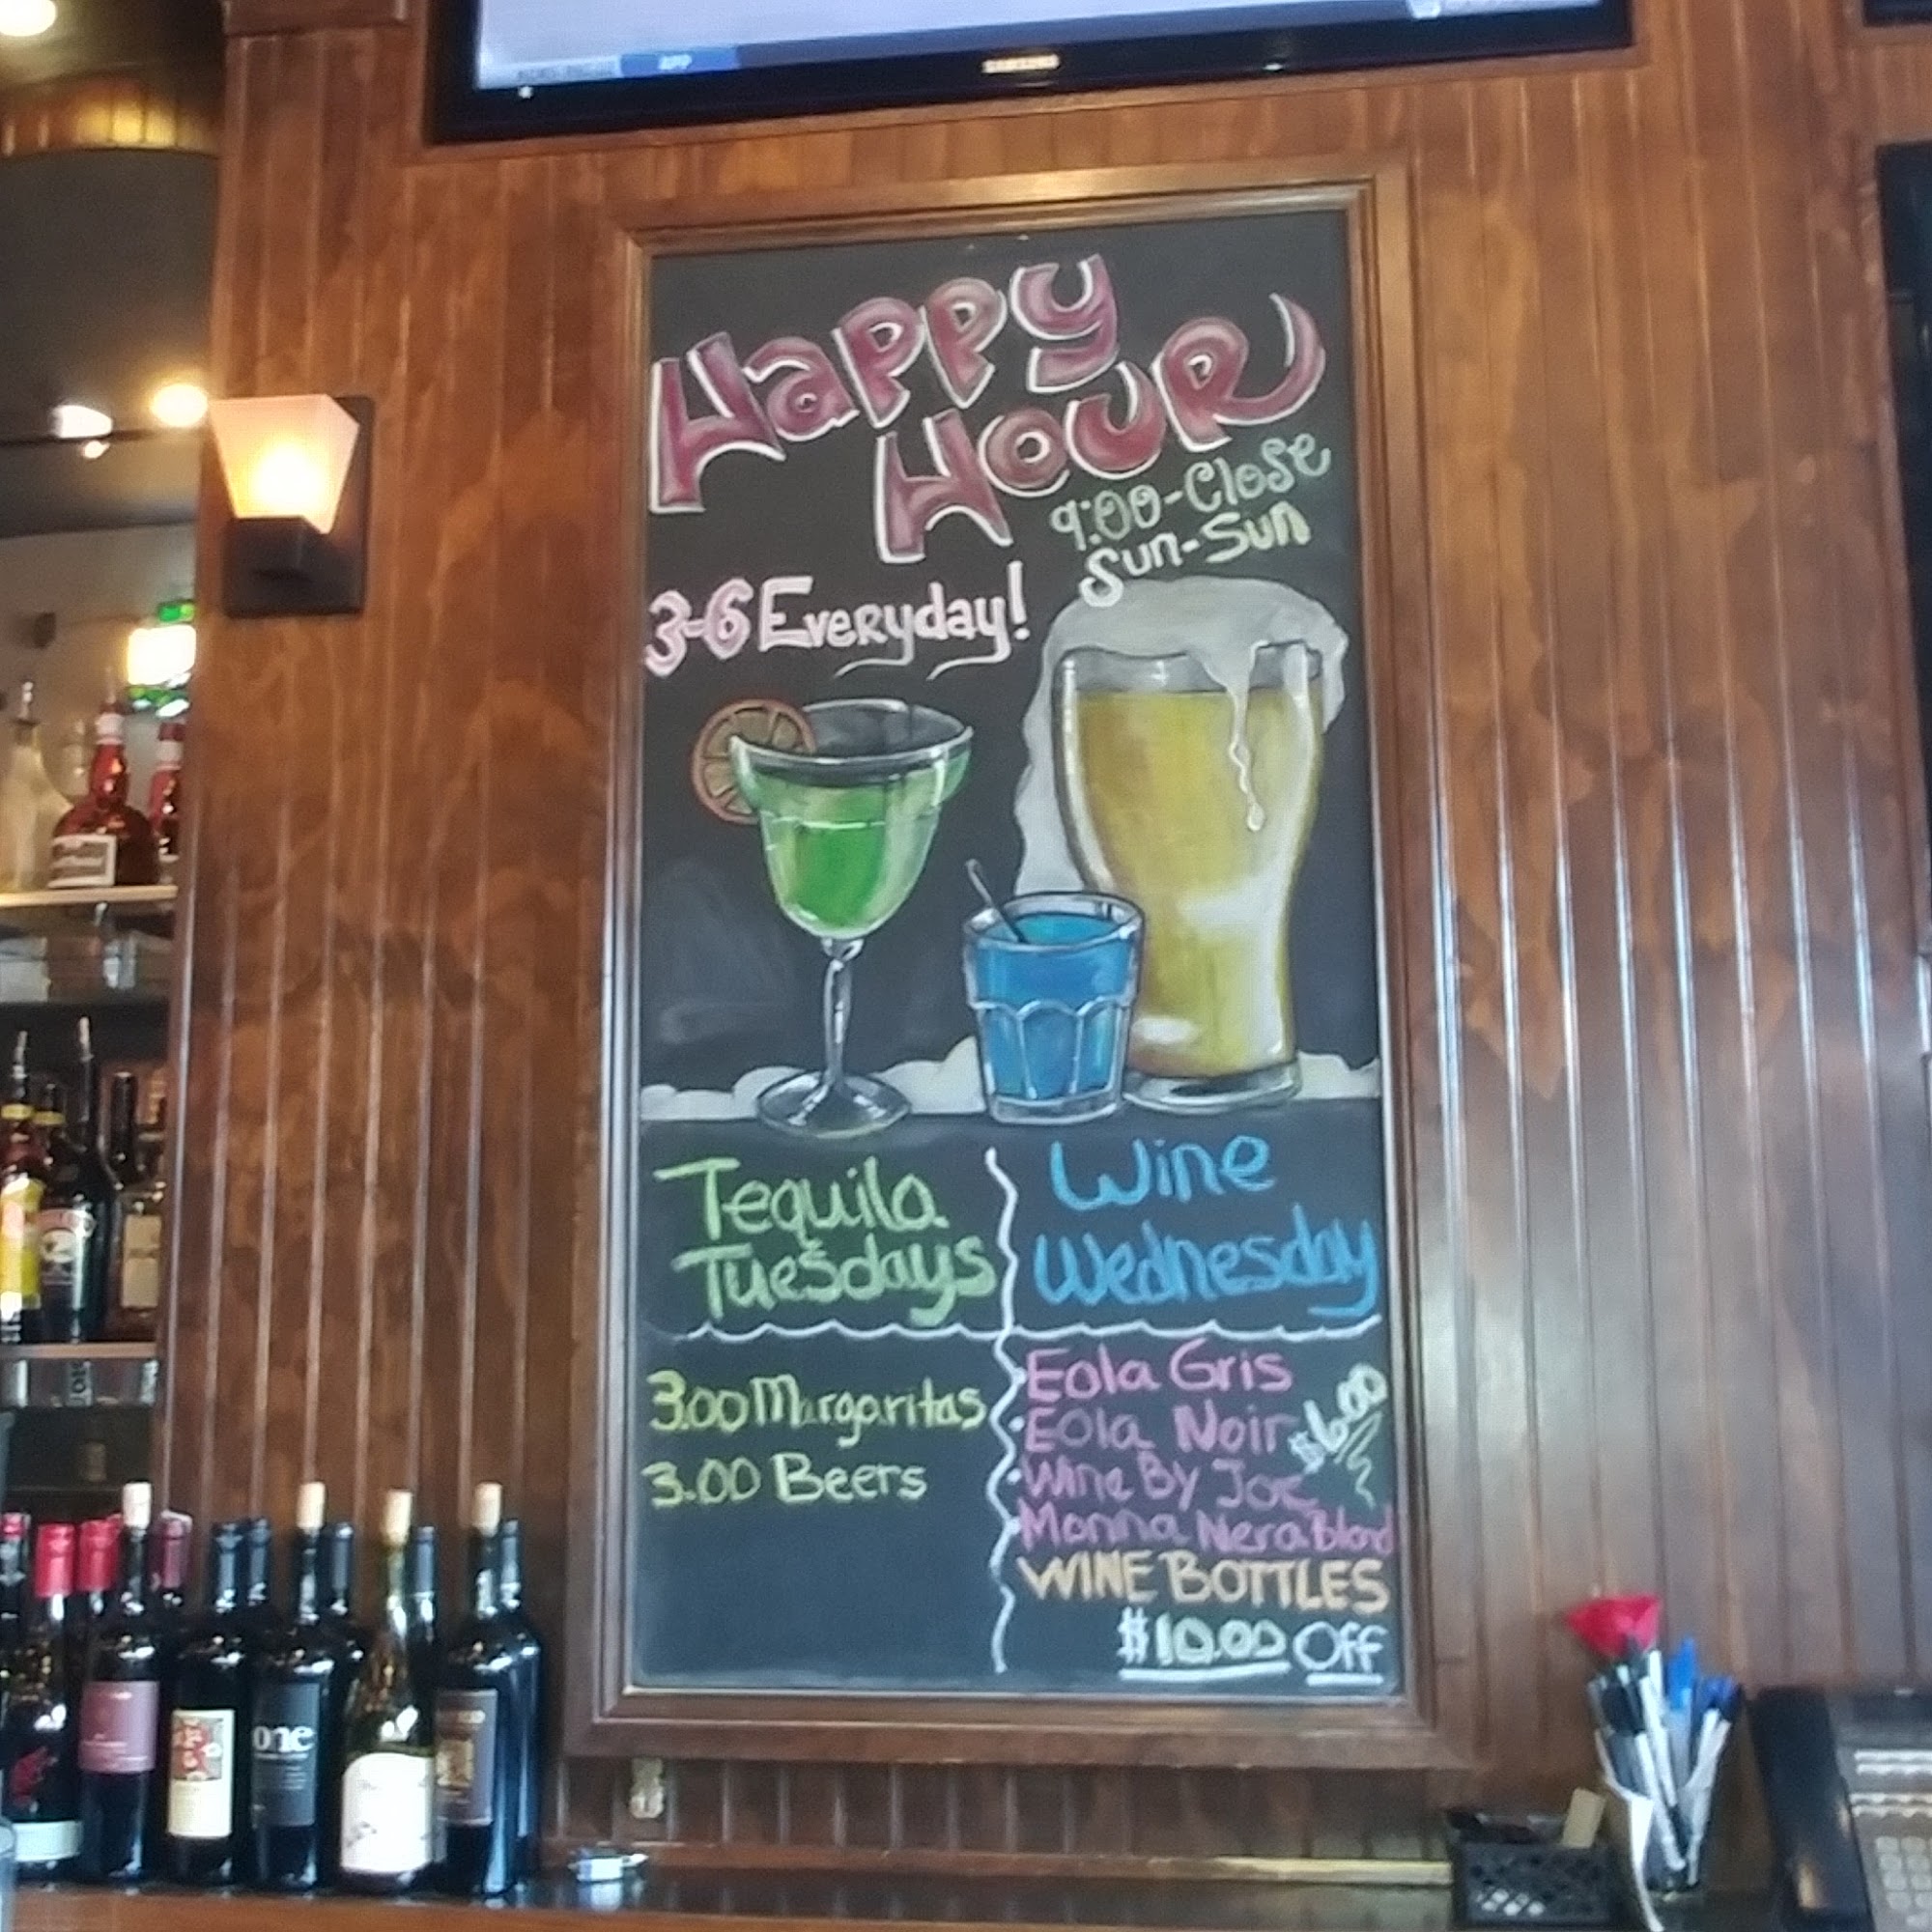 APP
SAMSUNG
Happy
Hour
9:00-Close
Sun-Sun
3-6 Everyday!
Tequila
Tuesdays
Wine
Wednesday
3.00 Margaritas
3.00 Beers
Eola Gris
Eola Noir
$6.00
Wine By Joe
Monna Nera Blend
WINE BOTTLES
$10.00 Off
one